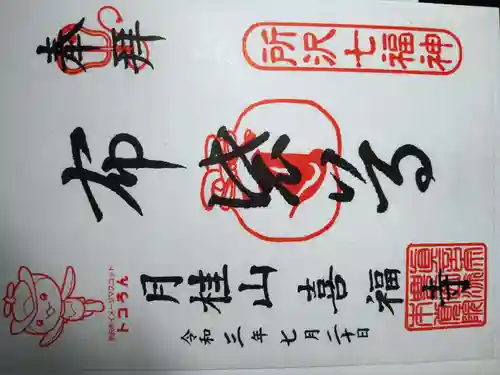 奉拝
所沢七福神
布袋
月桂山喜福寺
令和三年七月二十日
所沢市イメージマスコット
トコろん